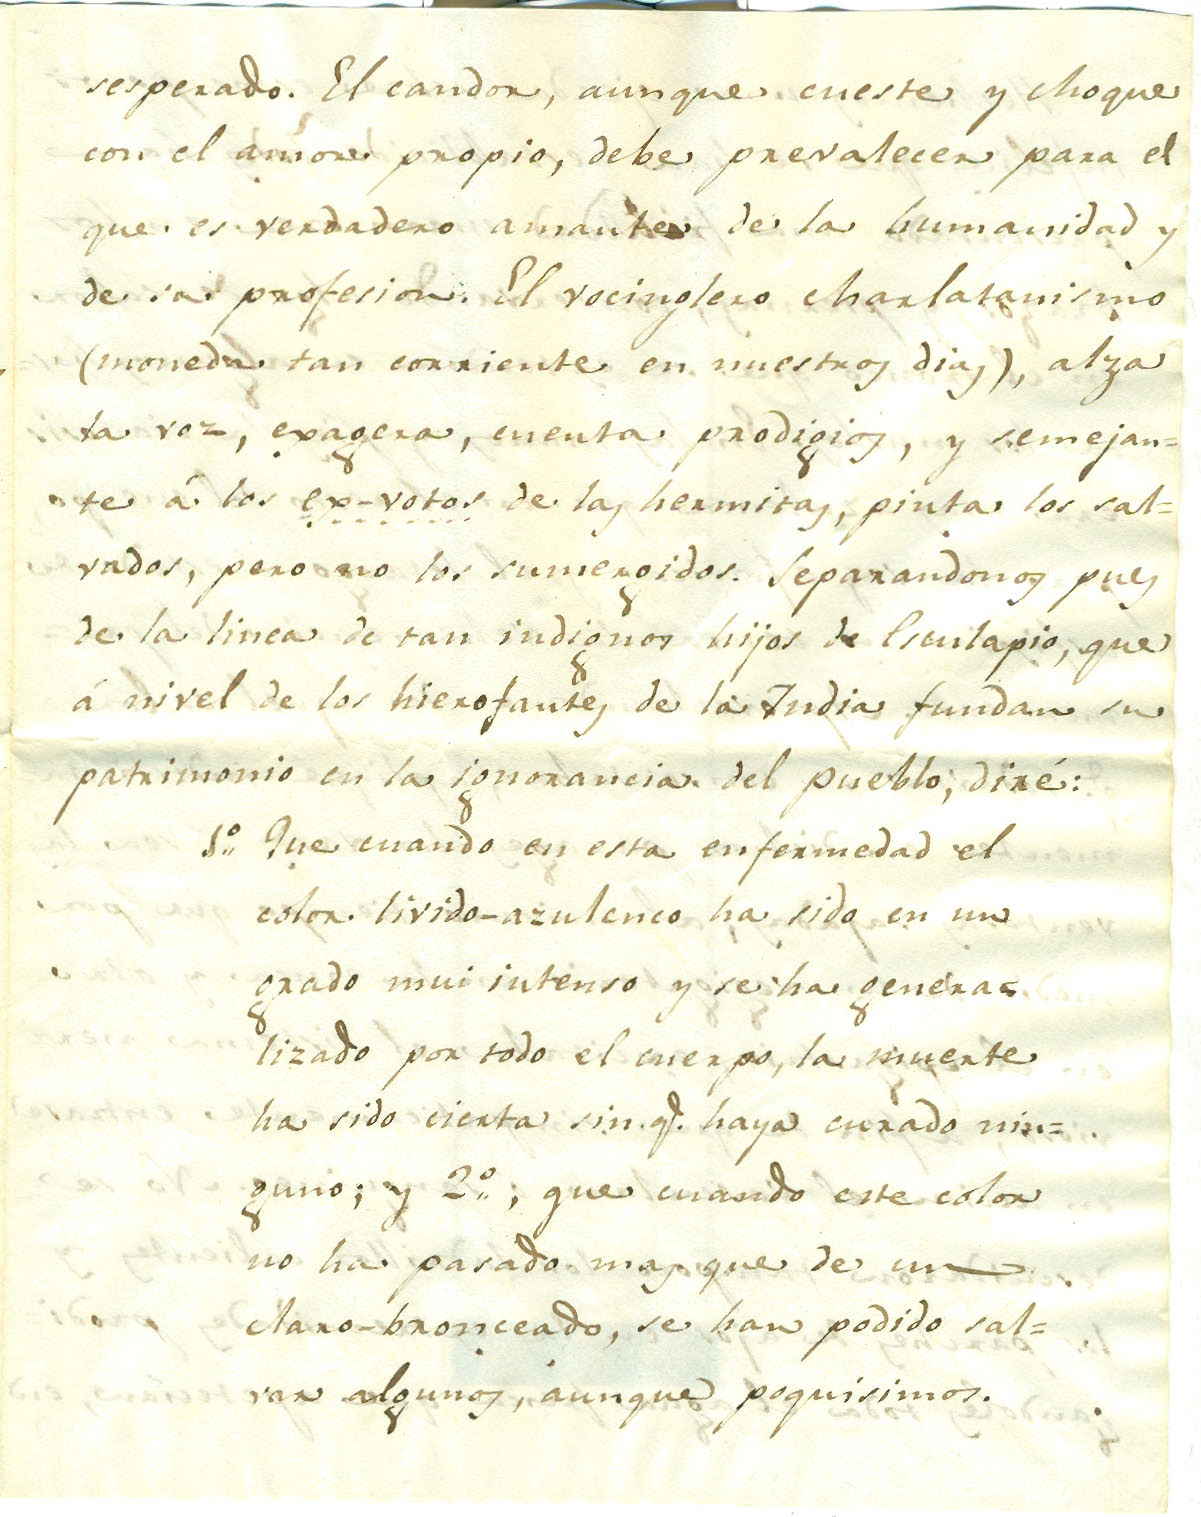 sesperado. El candor, aunque cueste y choque
con el amor propio, debe prevalecer para el
que es verdadero amante de la humanidad y
de sa profesion. El vocinglero charlatanismo
(moneda tan corriente en nuestros dias), alza
la voz, exagera, cuenta prodigios, y semejan=
te á los ex-votos de las hermitas, pinta los sal=
vados, pero no los sumergidos. Separandonos pues
de la linea de tan indignos hijos de Esculapio, que
á nivel de los hierofantes de la India fundan su
patrimonio en la ignorancia del pueblo, diré:
1º Que cuando en esta enfermedad el
color livido-azulenco ha sido en un
grado mui intenso y se ha genera=
lizado por todo el cuerpo, la muerte
ha sido cierta sin q. haya curado nin=
guno; y 2º; que cuando este color
no ha pasado mas que de un
claro-bronceado, se han podido sal=
var algunos, aunque poquisimos.